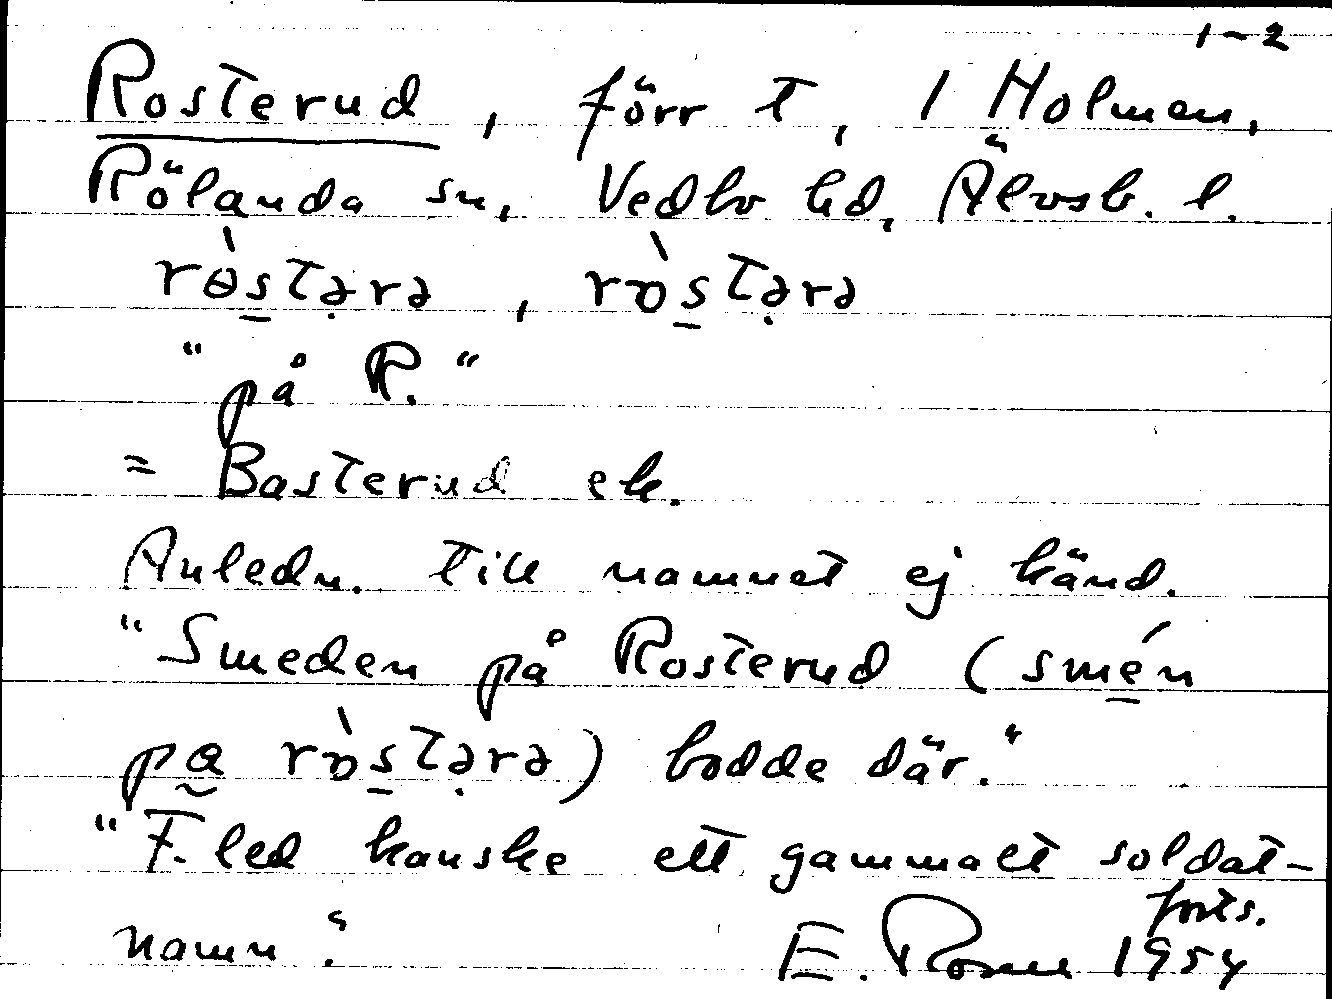 1-2
Rosterud, förr t, 1 Holmen,
Rölanda sn, Vedbo hd, Älvsb. l.
rɵ̀stərə, rɒ̀stərə
"på R."
= Basterud ek.
Anledn. till namnet ej känd.
"Smeden på Rosterud (smén
pa rɒ̀stərə) bodde där."
"F. led kanske ett gammalt soldat-
namn." forts.
E. 1954